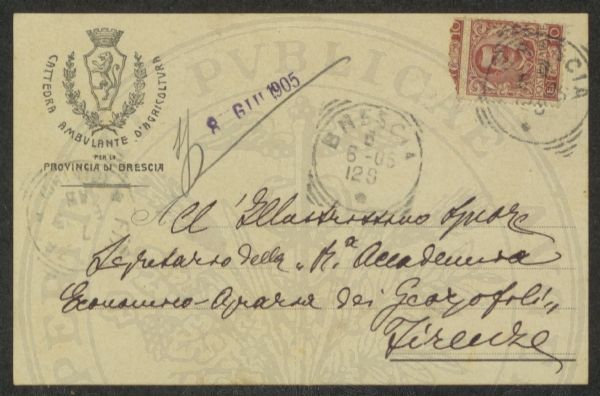 CATTEDRA AMBULANTE D'AGRICOLTURA
PER LA
PROVINCIA DI BRESCIA
8 GIU 1905
BRESCIA
6-05
12 S
All'Illustrissimo Signor
Segretario della „R.ª Accademia
Economico-Agraria dei Georgofili„
Firenze